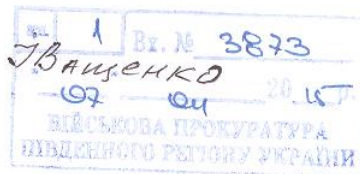 1 Вх. № 3873
Іващенко
07 04 2015 р.
ВІЙСЬКОВА ПРОКУРАТУРА
ПІВДЕННОГО РЕГІОНУ УКРАЇНИ